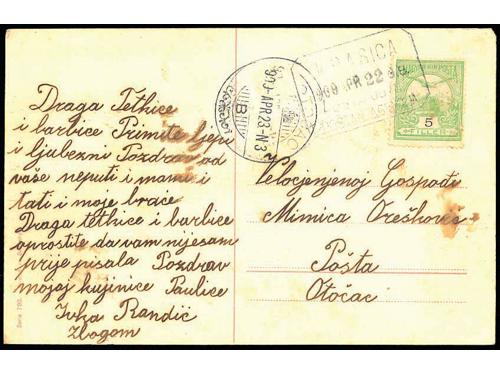 Draga Tetkice
i barbice Primite ljepi
i ljubezni Pozdrav od
vaše neputi i mame i
tati i moje brace
Draga tetkice i barbice
oprostite da vam nijesam
prije pisala Pozdrav
mojoj kujinice Paulice
Ivka Randić
Zbogom
909 APR 22
OTOČAC
909 APR 23 N3
5
FILLÉR
Velocjenjenoj Gospođi
Mimica Orešković
Pošta
Otočac
Serie 790.